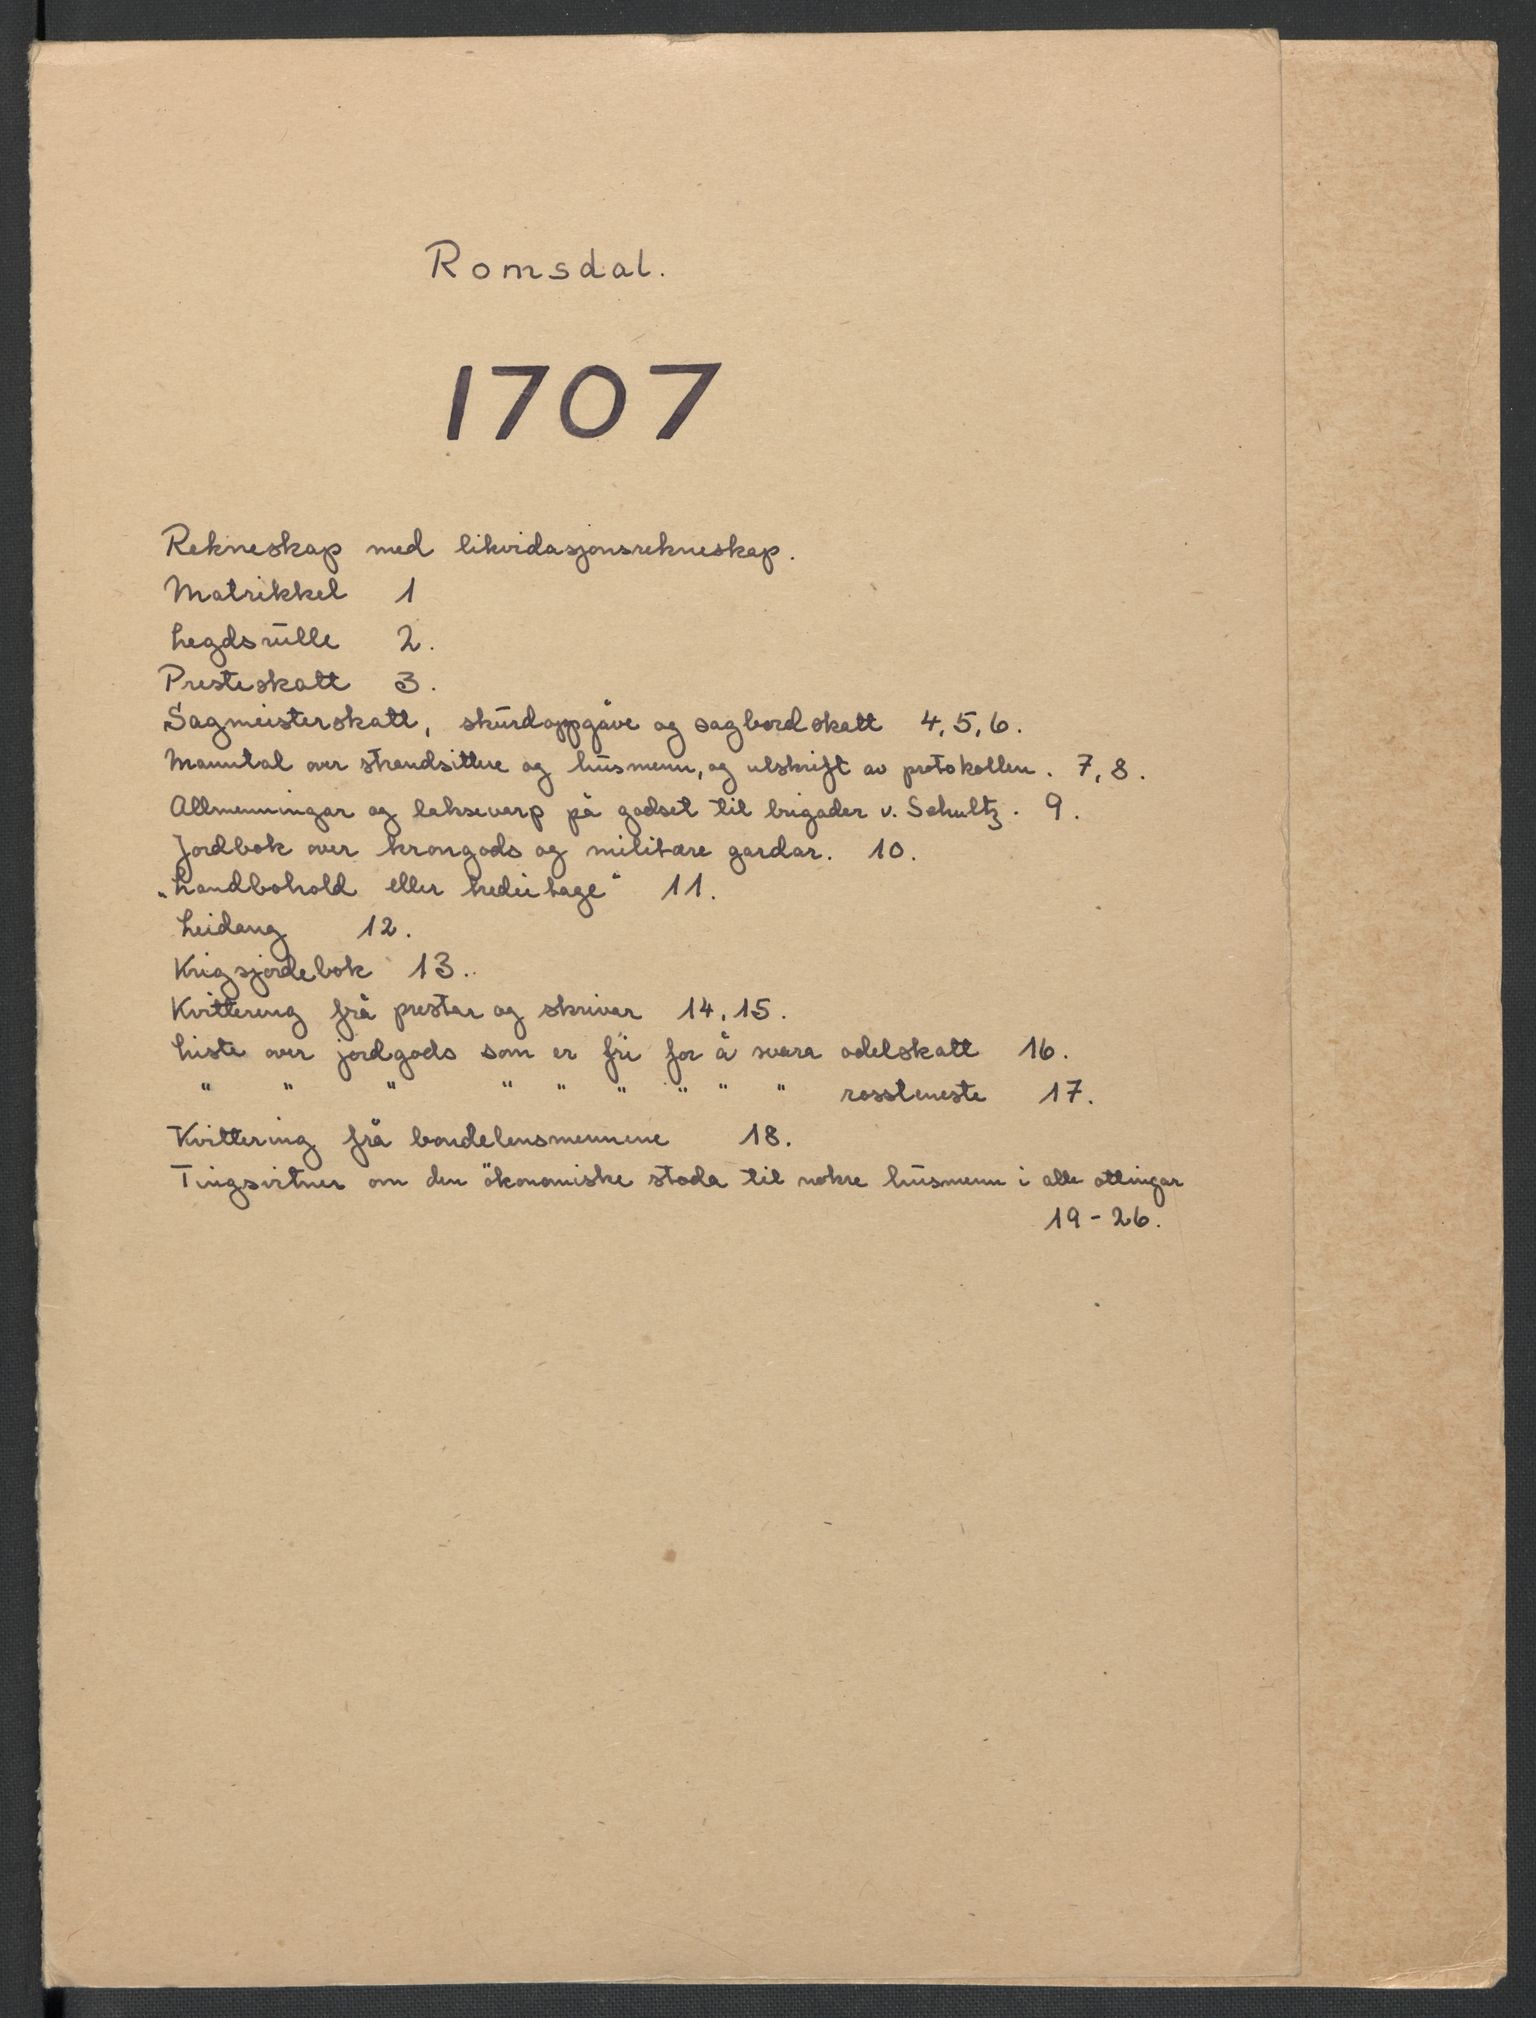 Romsdal.
1707
Rekneskap med likvidasjonsrekneskap.
Matrikkel 1
Legdsrulle 2.
Presteskatt 3.
Sagmeisterskatt, skurdoppgåve og sagbordskatt 4, 5, 6.
Manntal over strandsittere og husmenn, og utskrift av protokollen. 7, 8.
Allmenningar og laksevarp på godset til brigader v. Schultz. 9.
Jordbok over krongods og militære gardar. 10.
„Landbohold eller hedeitage“ 11.
Leidang 12.
Krigsjordebok 13..
Kvittering frå prestar og skrivar 14, 15.
Liste over jordgods som er fri for å svara odelskatt 16.
" " " " " " " " " rossteneste 17.
Kvittering frå bondelensmennene 18.
Tingsvitner om den ökonomiske stoda til nokre husmenn i alle otlingar
19-26.